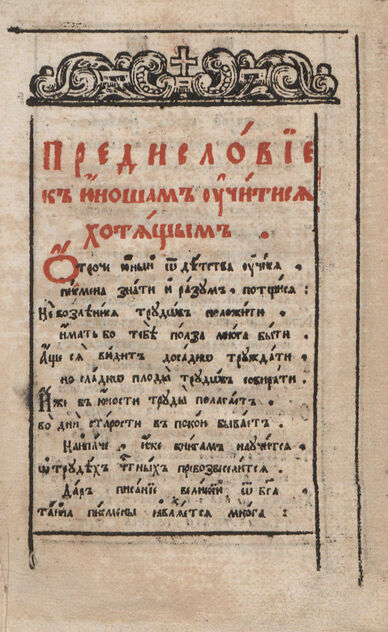 ПРЕДИСЛО́ВЇЕ
КЪ Ю́НОШАМЪ ОУ҆ЧИ́ТИСѦ
ХОТѦ́ЩЫМЪ .
Ѻ҆́трочє ю҆́ный ѿ дѣ́тства оу҆чи́сѧ .
пи́смена зна́ти и ра́зумъ потщи́сѧ :
Не возлени́сѧ трꙋдѡ́въ положи́ти
и҆́мать бо тебѣ̀ по́лза мно́га бы́ти
А҆́ще сѧ ви́дитъ доса́дно трꙋжда́ти
но сла́дкѡ плоды̀ трꙋдѡ́въ собира́ти .
И҆́же въ ю҆́ности трꙋды̀ полага́етъ .
во днѝ ста́рости въ поко́и быва́етъ .
Наипа́че . и҆́же кни́гамъ наꙋчи́тсѧ .
ѿ трꙋдѣ́хъ чⷭ҇тныхъ превозвесели́тсѧ .
Да́ръ писа́нїе вели́кїй ѿ бг҃а
та́йна пи́смены ꙗ҆влѧ́етсѧ мно́га :